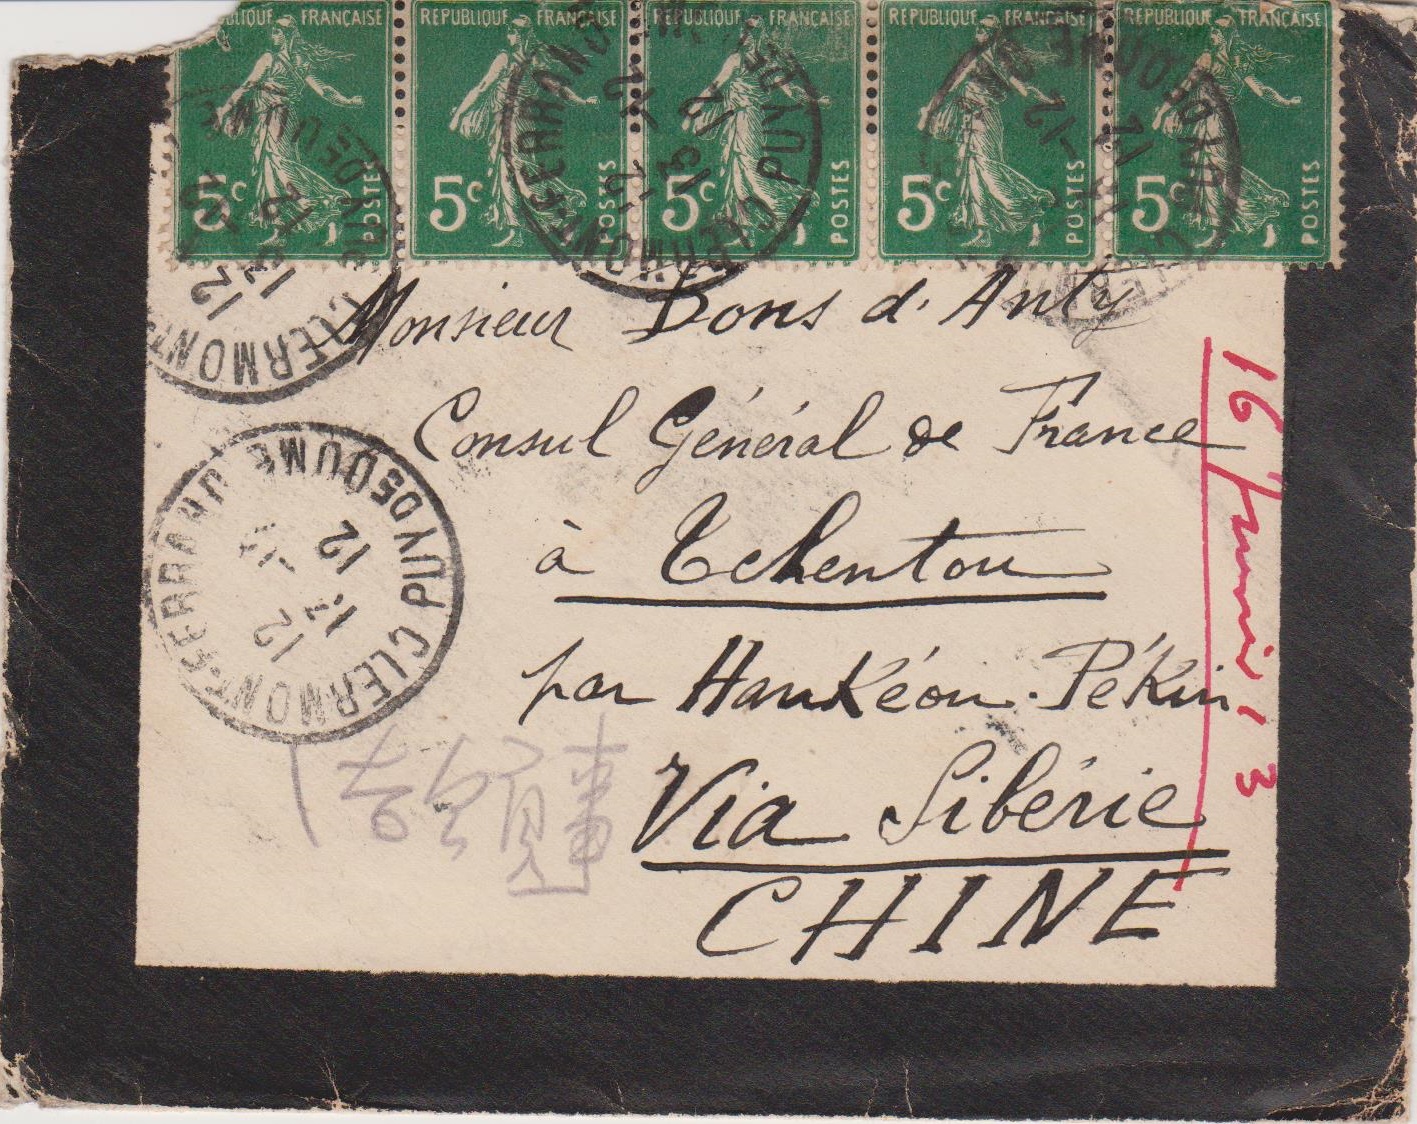 REPUBLIQUE FRANÇAISE REPUBLIQUE FRANÇAISE REPUBLIQUE FRANÇAISE REPUBLIQUE FRANÇAISE REPUBLIQUE FRANÇAISE
5c POSTES 5c POSTES 5c POSTES 5c POSTES 5c POSTES
CLERMONT-FERRAND PUY DE DOME
Monsieur Dons d'Anty
Consul Général de France
à Tchentou
par Hankéou-Pékin
Via Sibérie
CHINE
16 Janvier 13
CLERMONT-FERRAND PUY DE DOME
12
領事